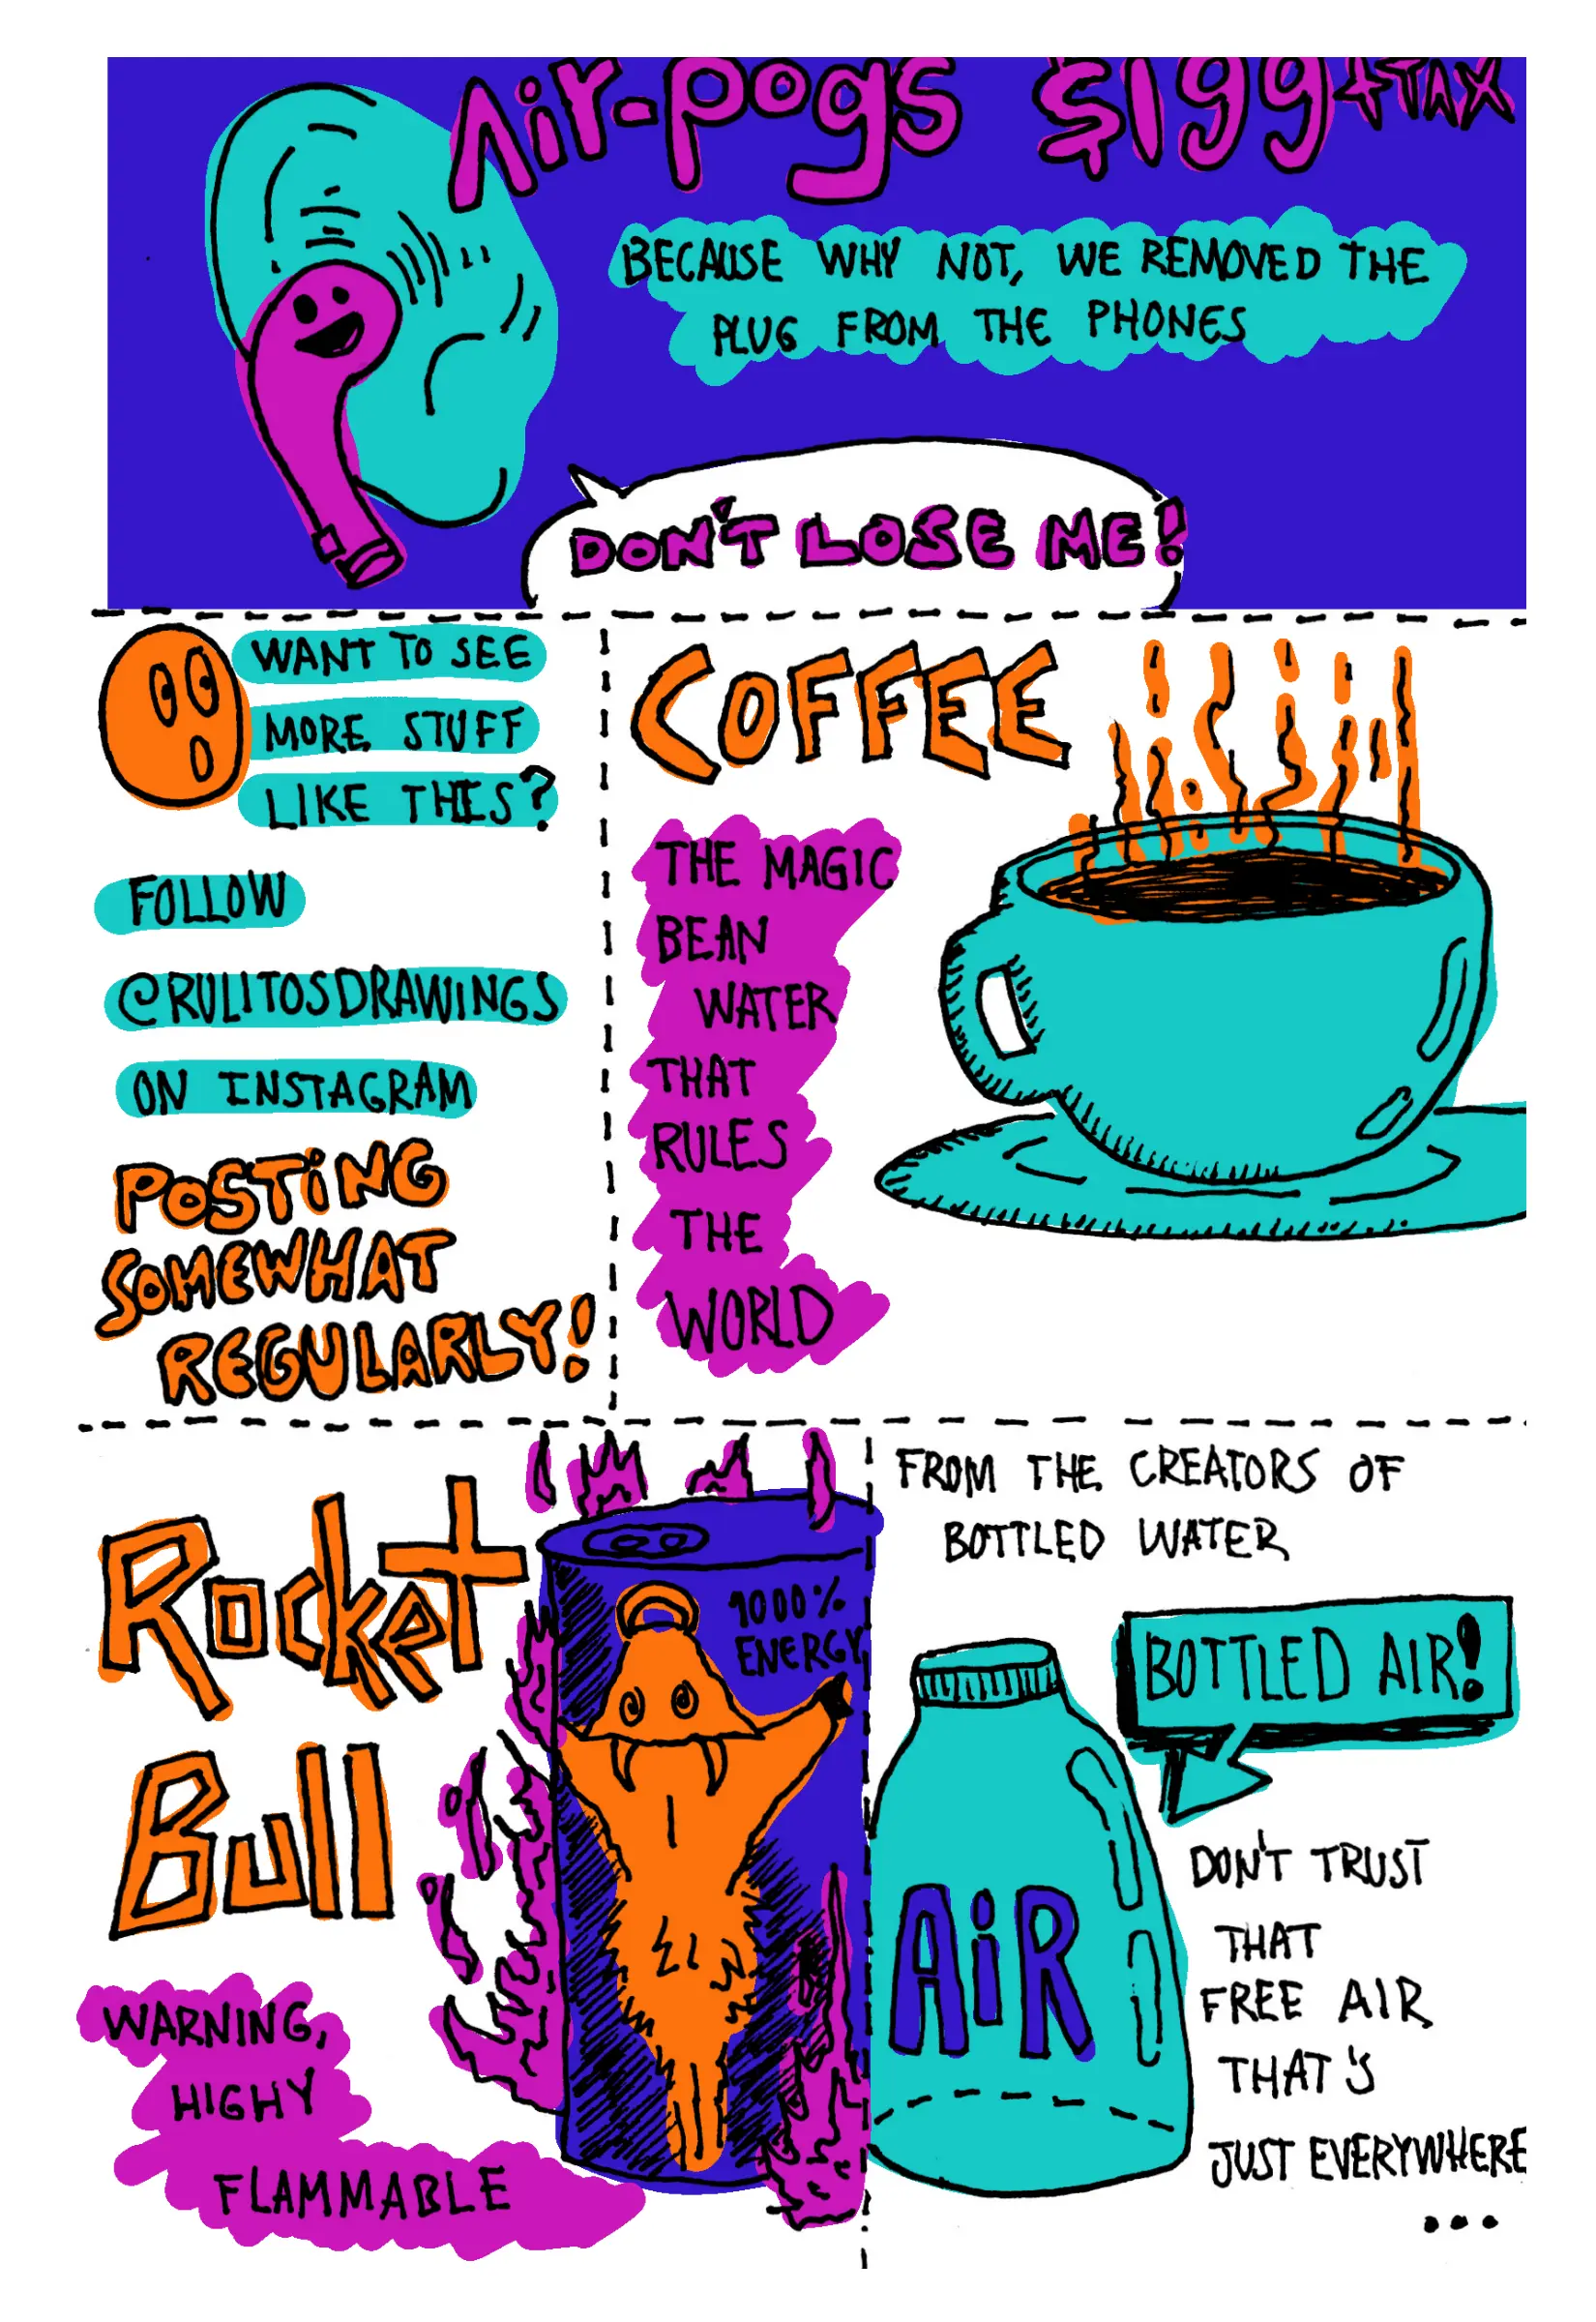 Air-pogs $199 + TAX
BECAUSE WHY NOT, WE REMOVED THE
PLUG FROM THE PHONES
DON'T LOSE ME!
WANT TO SEE
MORE STUFF
LIKE THIS?
FOLLOW
@RULITOSDRAWINGS
ON INSTAGRAM
POSTiNG
SOMEWHAT
REGULARLY!
COFFEE
THE MAGIC
BEAN
WATER
THAT
RULES
THE
WORLD
Rocket
Bull
1000%
ENERGY
WARNING,
HIGHY
FLAMMABLE
FROM THE CREATORS OF
BOTTLED WATER
BOTTLED AIR!
AiR
DON'T TRUST
THAT
FREE AIR
THAT'S
JUST EVERYWHERE
...